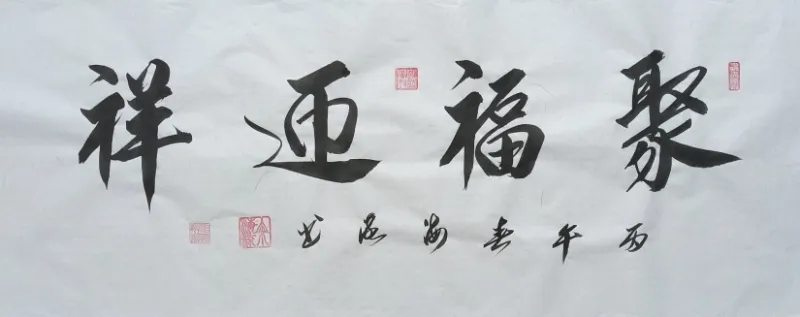 聚福迎祥
丙午春海书